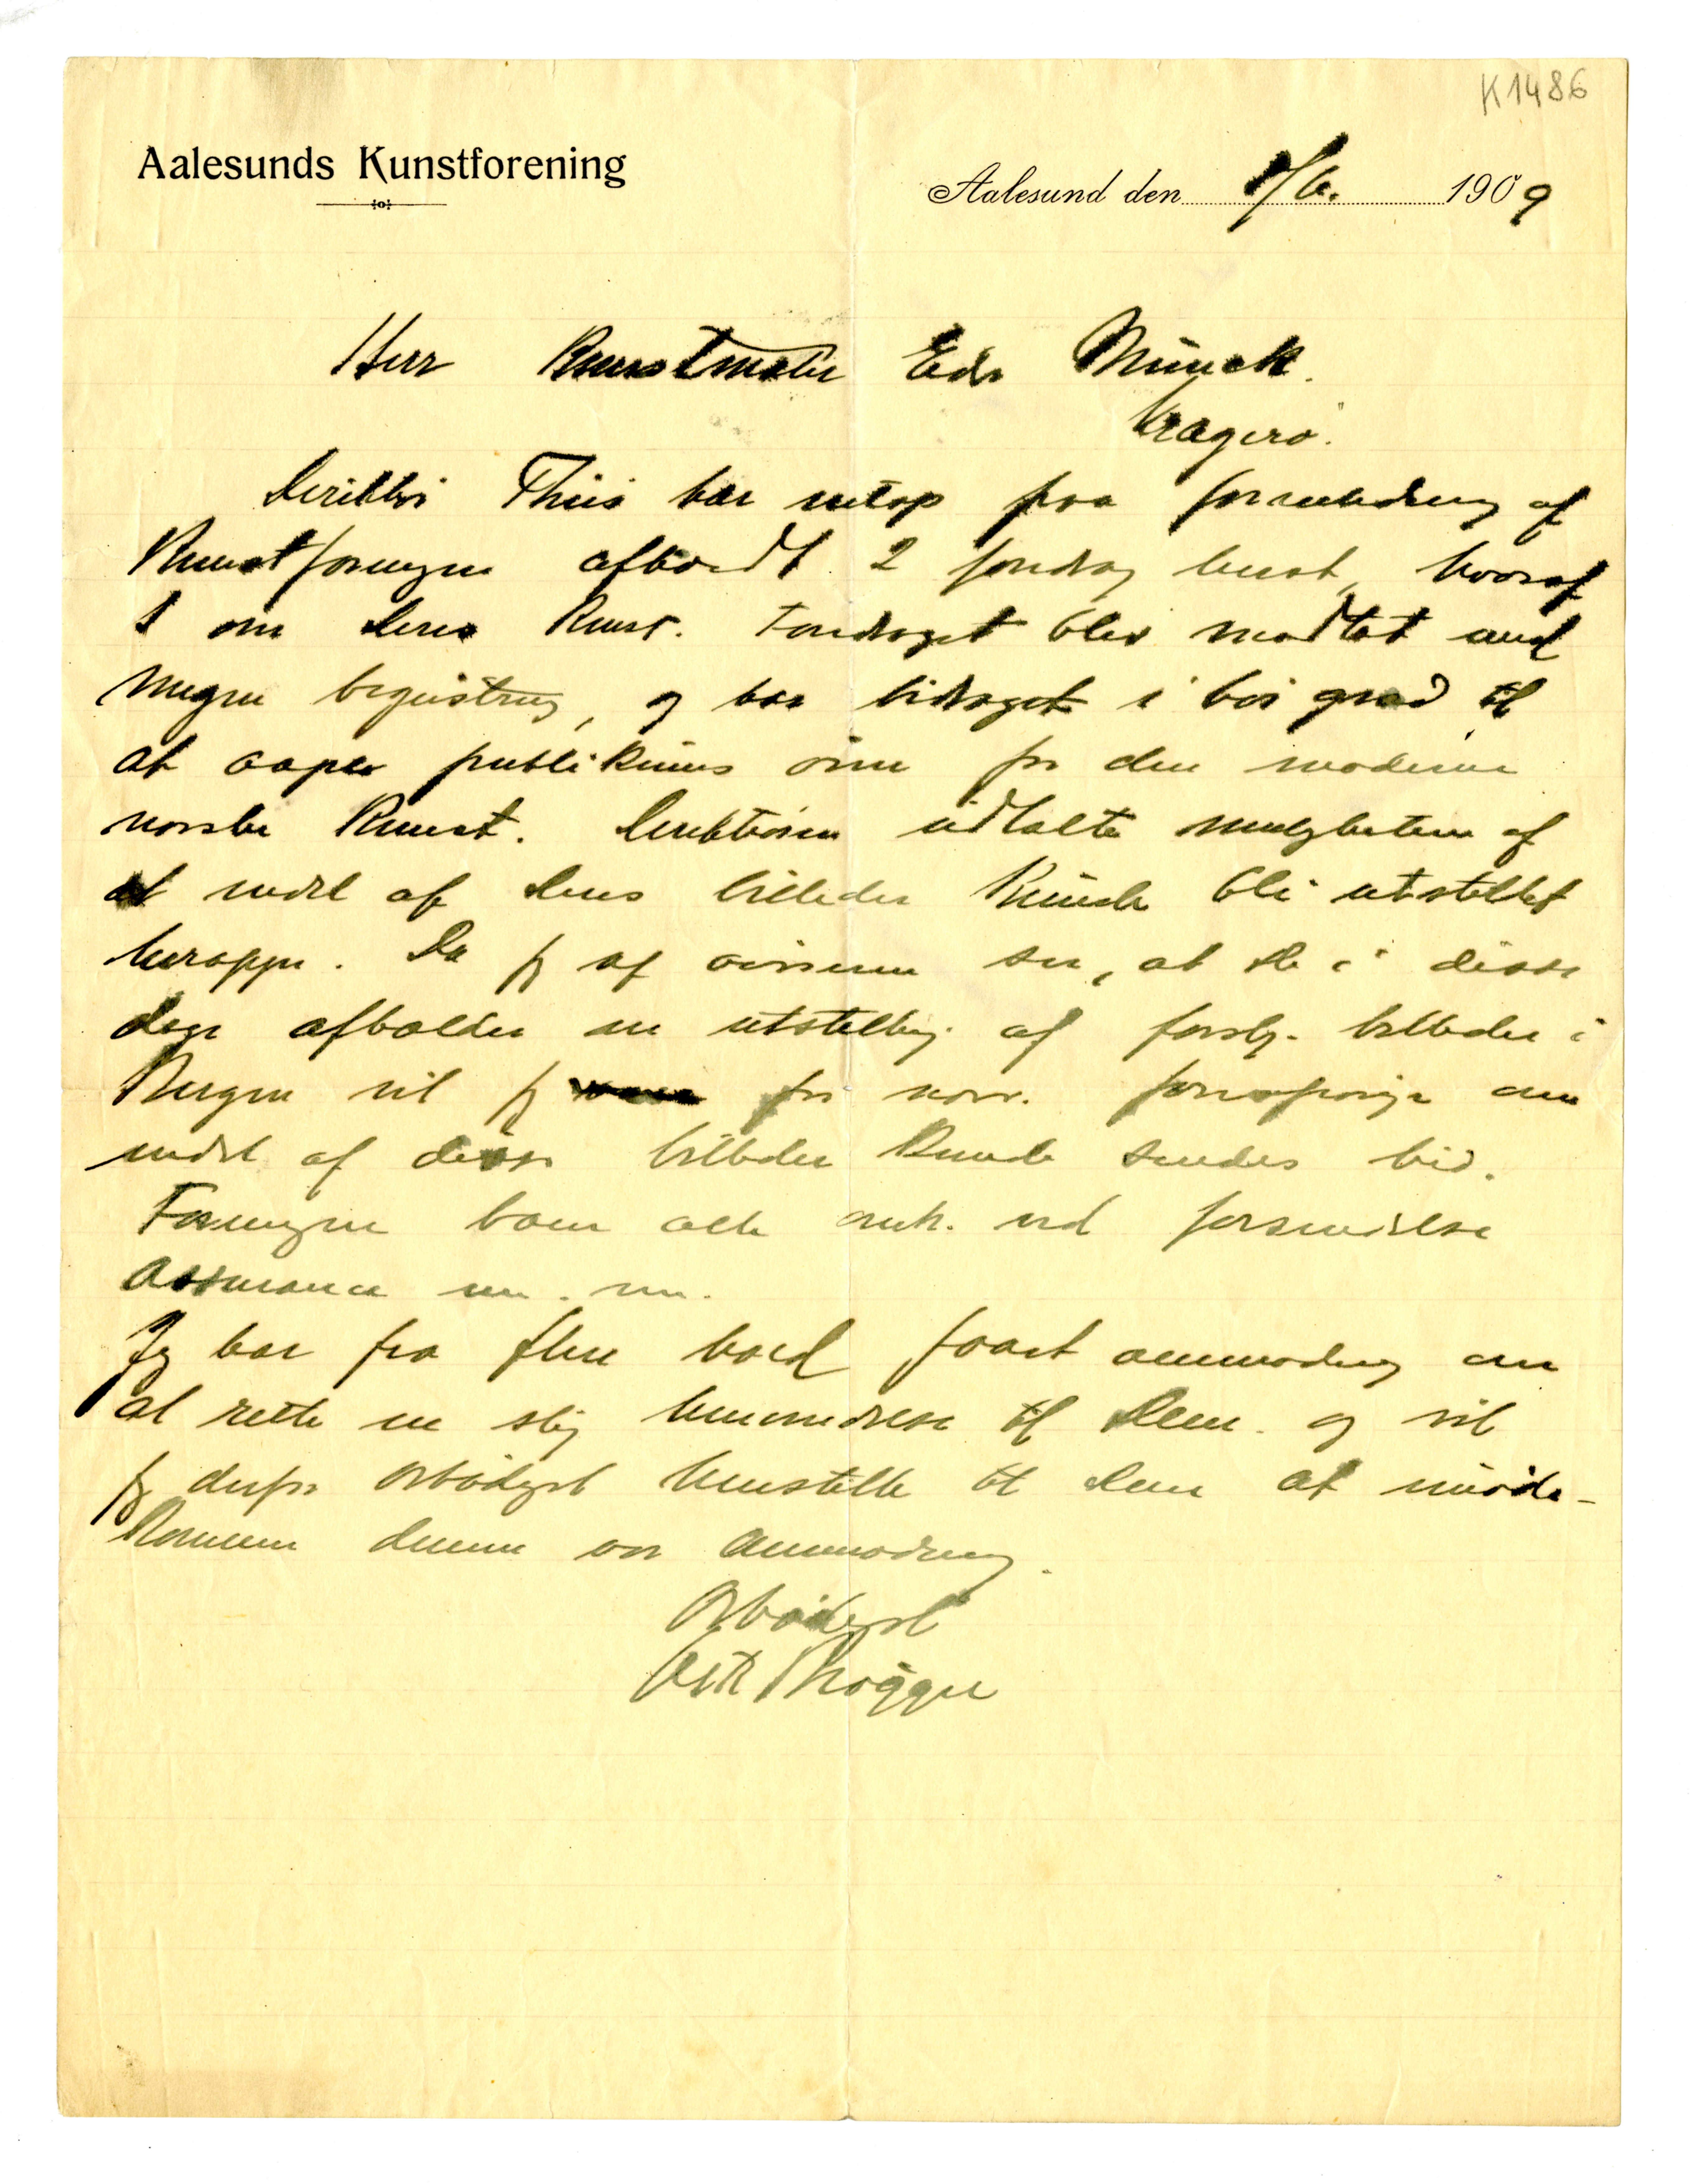 K1486
Aalesunds Kunstforening
Aalesund den 8/6. 1909
Herr Kunstmaler Edv Munch.
Kragerø.
Direktør Thiis har netop paa foranledning af
Kunstforeningen afholdt 2 foredrag herat, hvoraf
1 om Deres Kunst. Foredraget blev modtat med
megen begeistring, og har bidraget i høi grad til
at aapne publikums øine for den moderne
norske Kunst. Direktøren udtalte muligheten af
at endel af Deres billeder kunde bli utstillet
heroppe. Da jeg af aviserne ser, at De i disse
dage afholder en utstilling af forskj. billeder i
Bergen vil jeg for norv. forespørge om
endel af disse billeder kunde sendes hid.
Foreningen bærer alle omk. ved forsendelse
Assurance m. m.
Jeg har fra flere hold faaet anmodning om
at rette en slig henvendelse til Dem og vil
jeg derfor ærbødigst henstille til Dem at imøde-
komme denne vor anmodning.
Ærbødigst